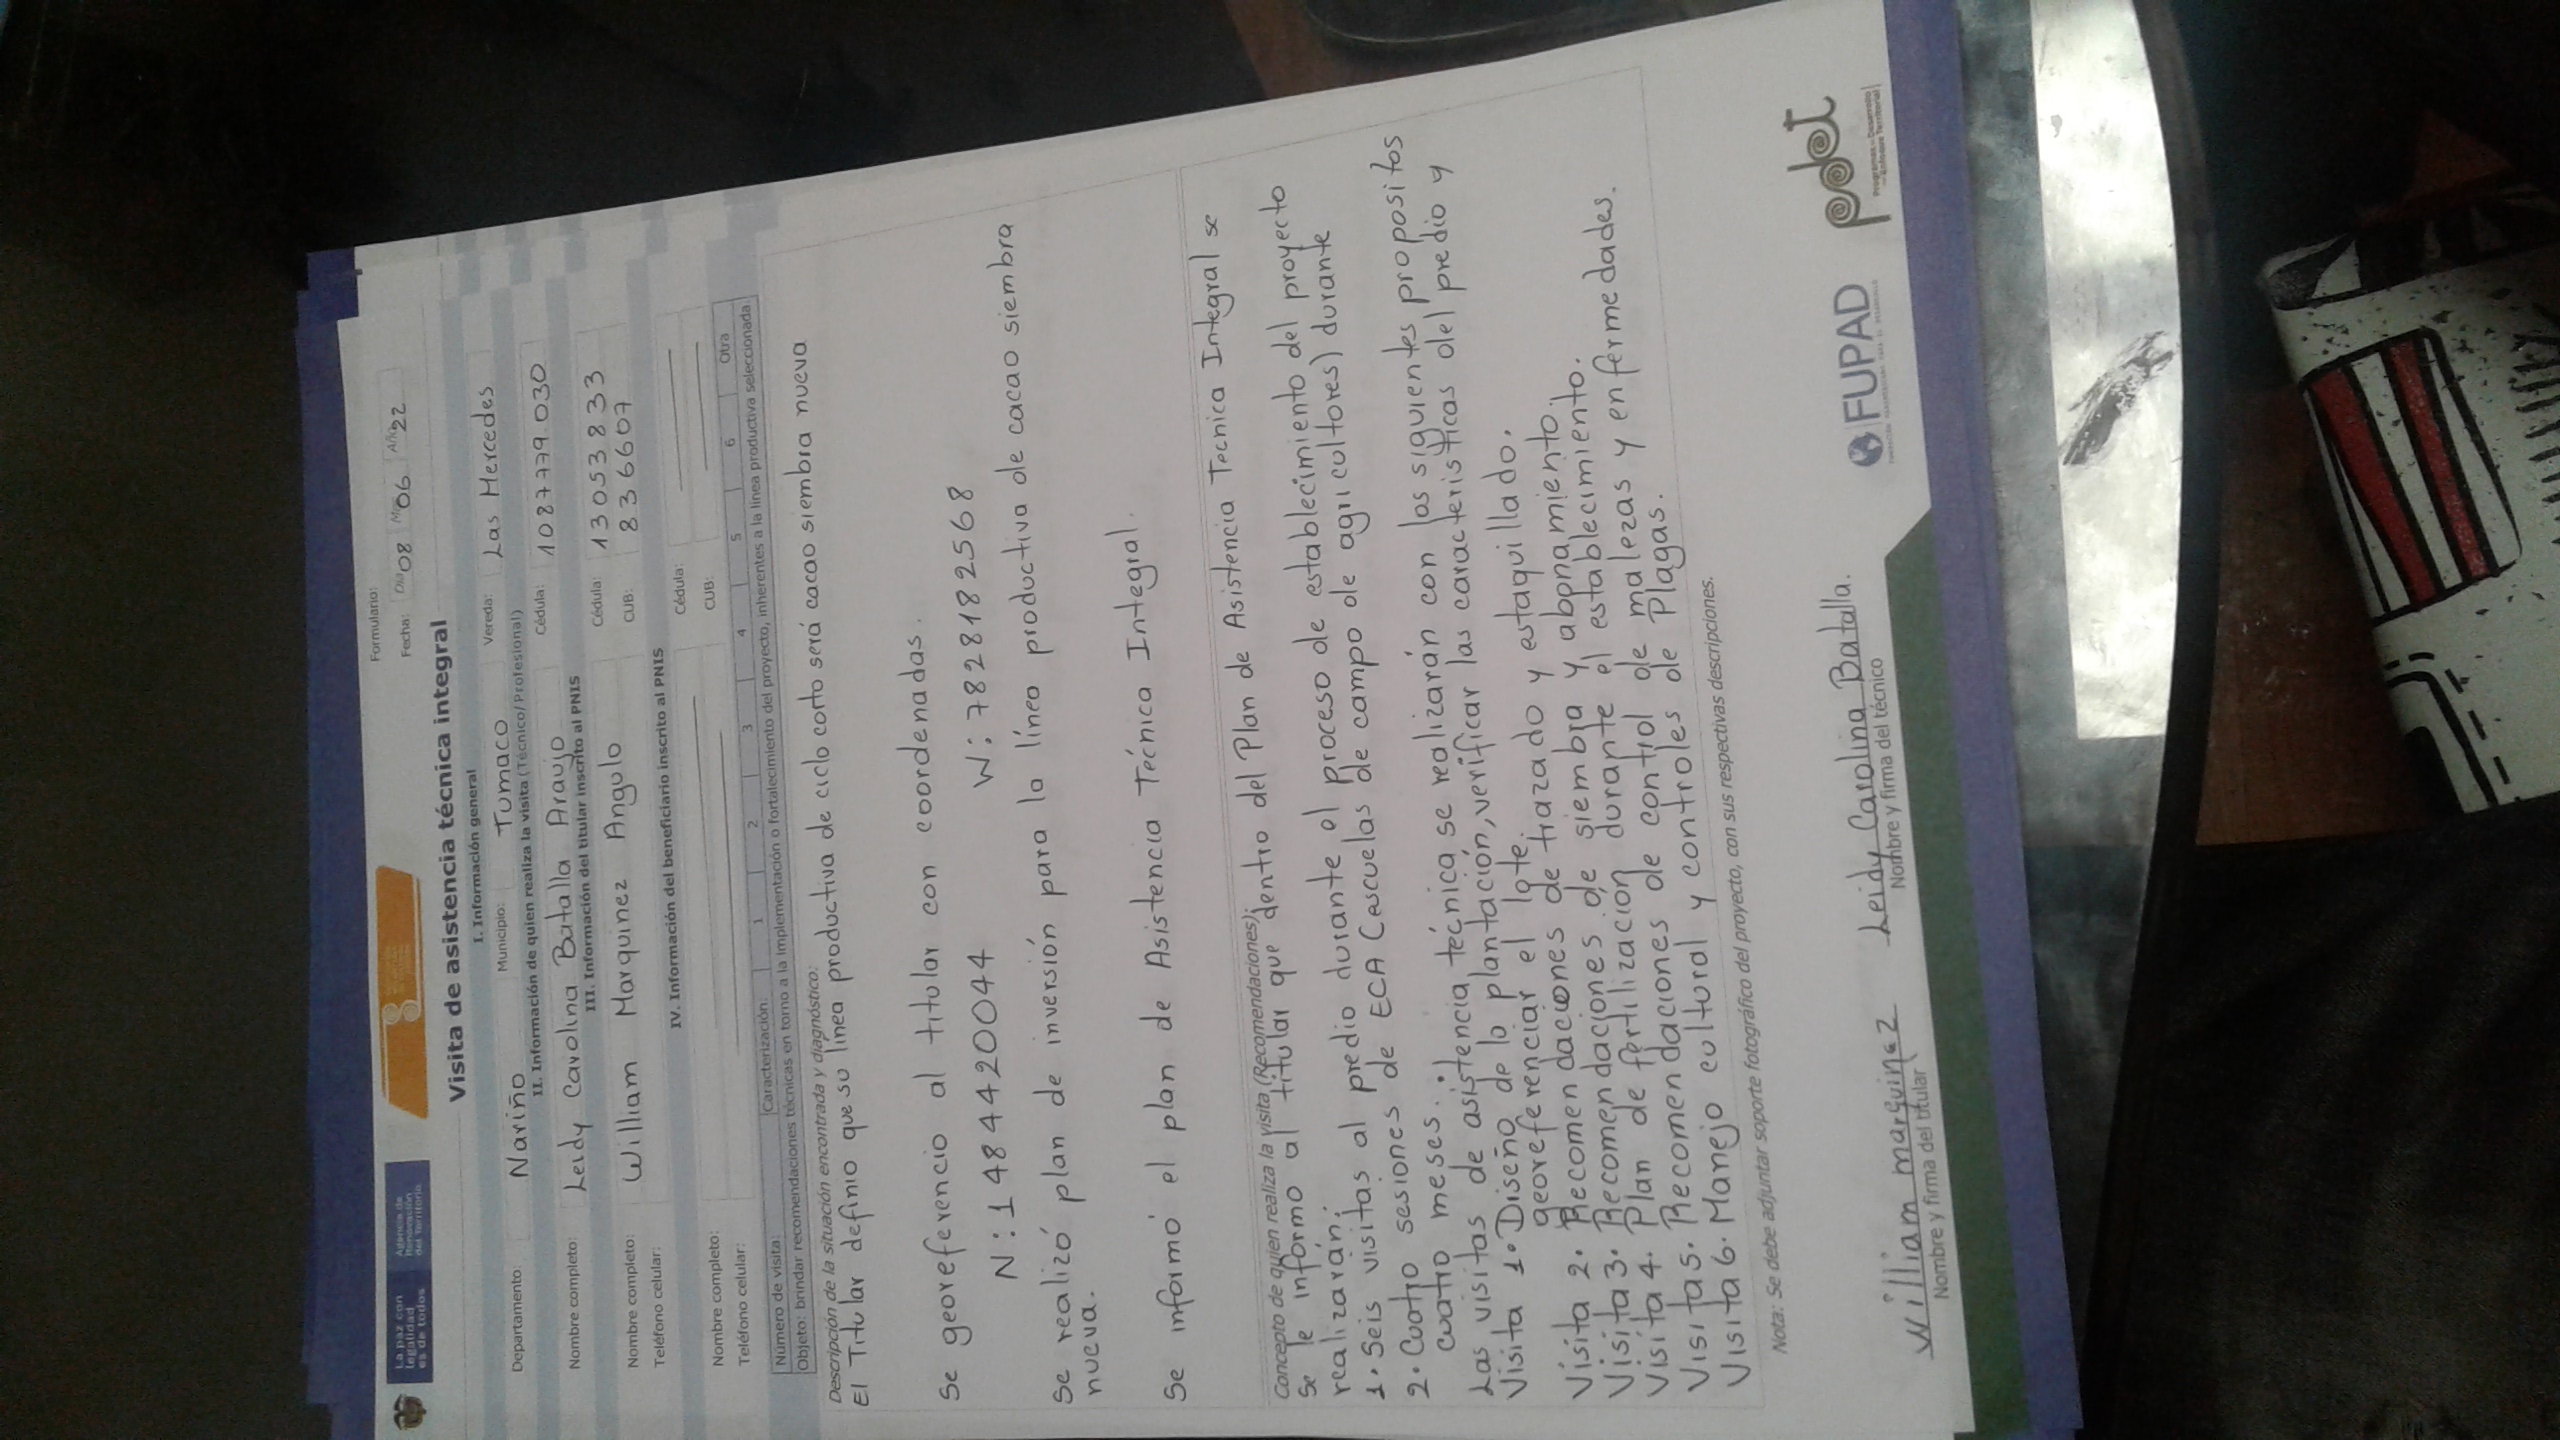 La paz con
legalidad
es de todos
Agencia de
Renovación
del Territorio
Formulario:
Fecha: Día 08 Mes 06 Año 22
Visita de asistencia técnica integral
I. Información general
Departamento: Nariño Municipio: Tumaco Vereda: Las Mercedes
II. Información de quien realiza la visita (Técnico/ Profesional)
Nombre completo: Leidy Carolina Batalla Araujo Cédula: 1087779.030
III. Información del titular inscrito al PNIS
Nombre completo: William Marquinez Angulo Cédula: 13053833
Teléfono celular: CUB: 836607
IV. Información del beneficiario inscrito al PNIS
Nombre completo: Cédula:
Teléfono celular: CUB:
Número de visita: Caracterización: 1 2 3 4 5 6 Otra
Objeto: brindar recomendaciones técnicas en torno a la implementación o fortalecimiento del proyecto, inherentes a la línea productiva seleccionada.
Descripción de la situación encontrada y diagnóstico:
El Titular definio que su línea productiva de ciclo corto será cacao siembra nueva
Se georeferencio al titular con coordenadas.
N: 148442 0044 W: 7828182568
Se realizó plan de inversión para la línea productiva de cacao siembra
nueva.
Se informó el plan de Asistencia Técnica Integral.
Concepto de quien realiza la visita (Recomendaciones):
Se le informo al titular que dentro del Plan de Asistencia Tecnica Integral se
realizarán:
1. Seis visitas al predio durante el proceso de establecimiento del proyecto
2. Cuatro sesiones de ECA (escuelas de campo de agricultores) durante
cuatro meses.
Las visitas de asistencia técnica se realizarán con los siguientes propositos
Visita 1. Diseño de la plantación, verificar las caracteristicas del predio y
georeferenciar el lote.
Visita 2. Recomendaciones de trazado y estaquillado.
Visita 3. Recomendaciones de siembra y abonamiento.
Visita 4. Plan de fertilización durante el establecimiento.
Visita 5. Recomendaciones de control de malezas y enfermedades.
Visita 6. Manejo cultural y controles de Plagas.
Nota: Se debe adjuntar soporte fotográfico del proyecto, con sus respectivas descripciones.
William marquinez Leidy Carolina Batalla.
Nombre y firma del titular Nombre y firma del técnico
FUPAD
pdet
Programas de Desarrollo
con Enfoque Territorial